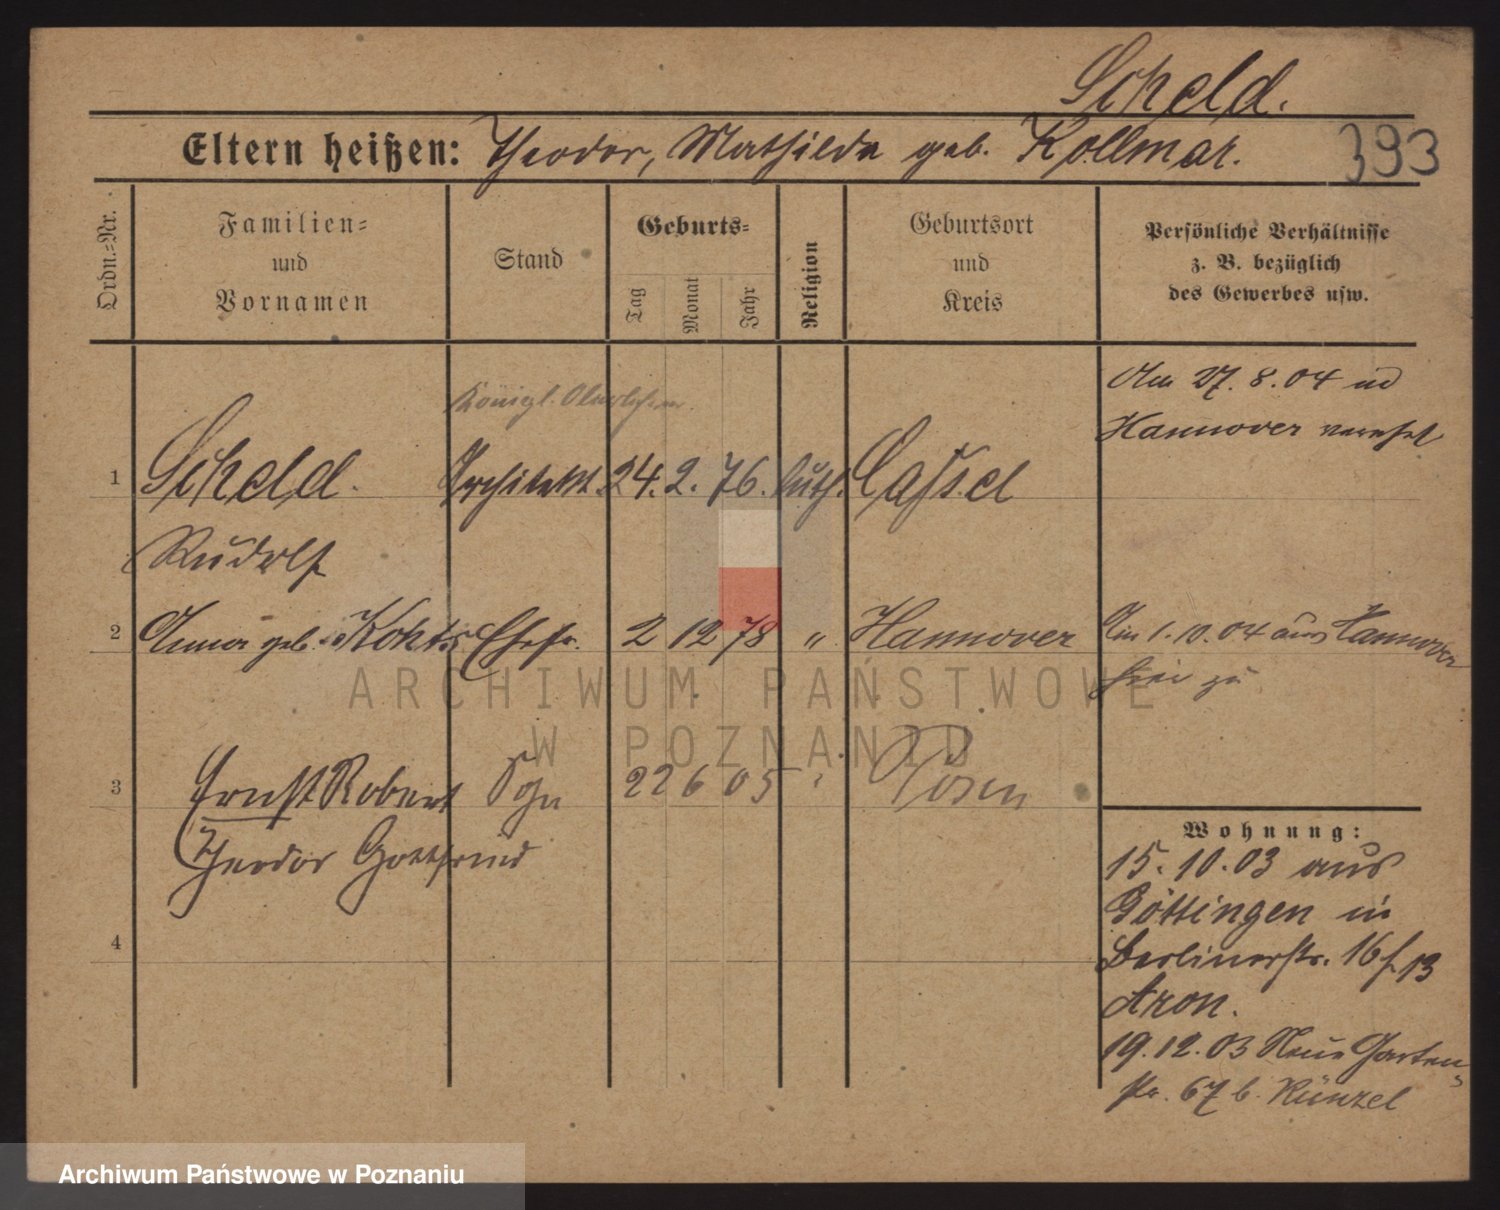 Scheld.
Eltern heißen: Theodor, Mathilde geb. Kollmar.
393
Ordn.-Nr.
Familien-
und
Vornamen
Stand
Geburts-
Tag
Monat
Jahr
Religion
Geburtsort
und
Kreis
Persönliche Verhältnisse
z. B. bezüglich
des Gewerbes usw.
Am 27.8.04 in
Hannover verehel
Königl.
1 Scheld. Architekt. 24. 2. 76. luth. Cassel
Rudolf
2 Anna geb. Ehefr. 2 12 78 " Hannover
Am 1.10.04 aus Hannover
hier zu
ARCHIWUM PAŃSTWOWE
W POZNANIU
3 Ernst Robert Sohn 22 6 05 " Posen
Theodor Gottfried
4
Wohnung:
15.10.03 aus
Göttingen in
Berlinerstr. 16 b.
Aron.
19.12.03 Neue Garten-
str. 67 b. Künzel
Archiwum Państwowe w Poznaniu